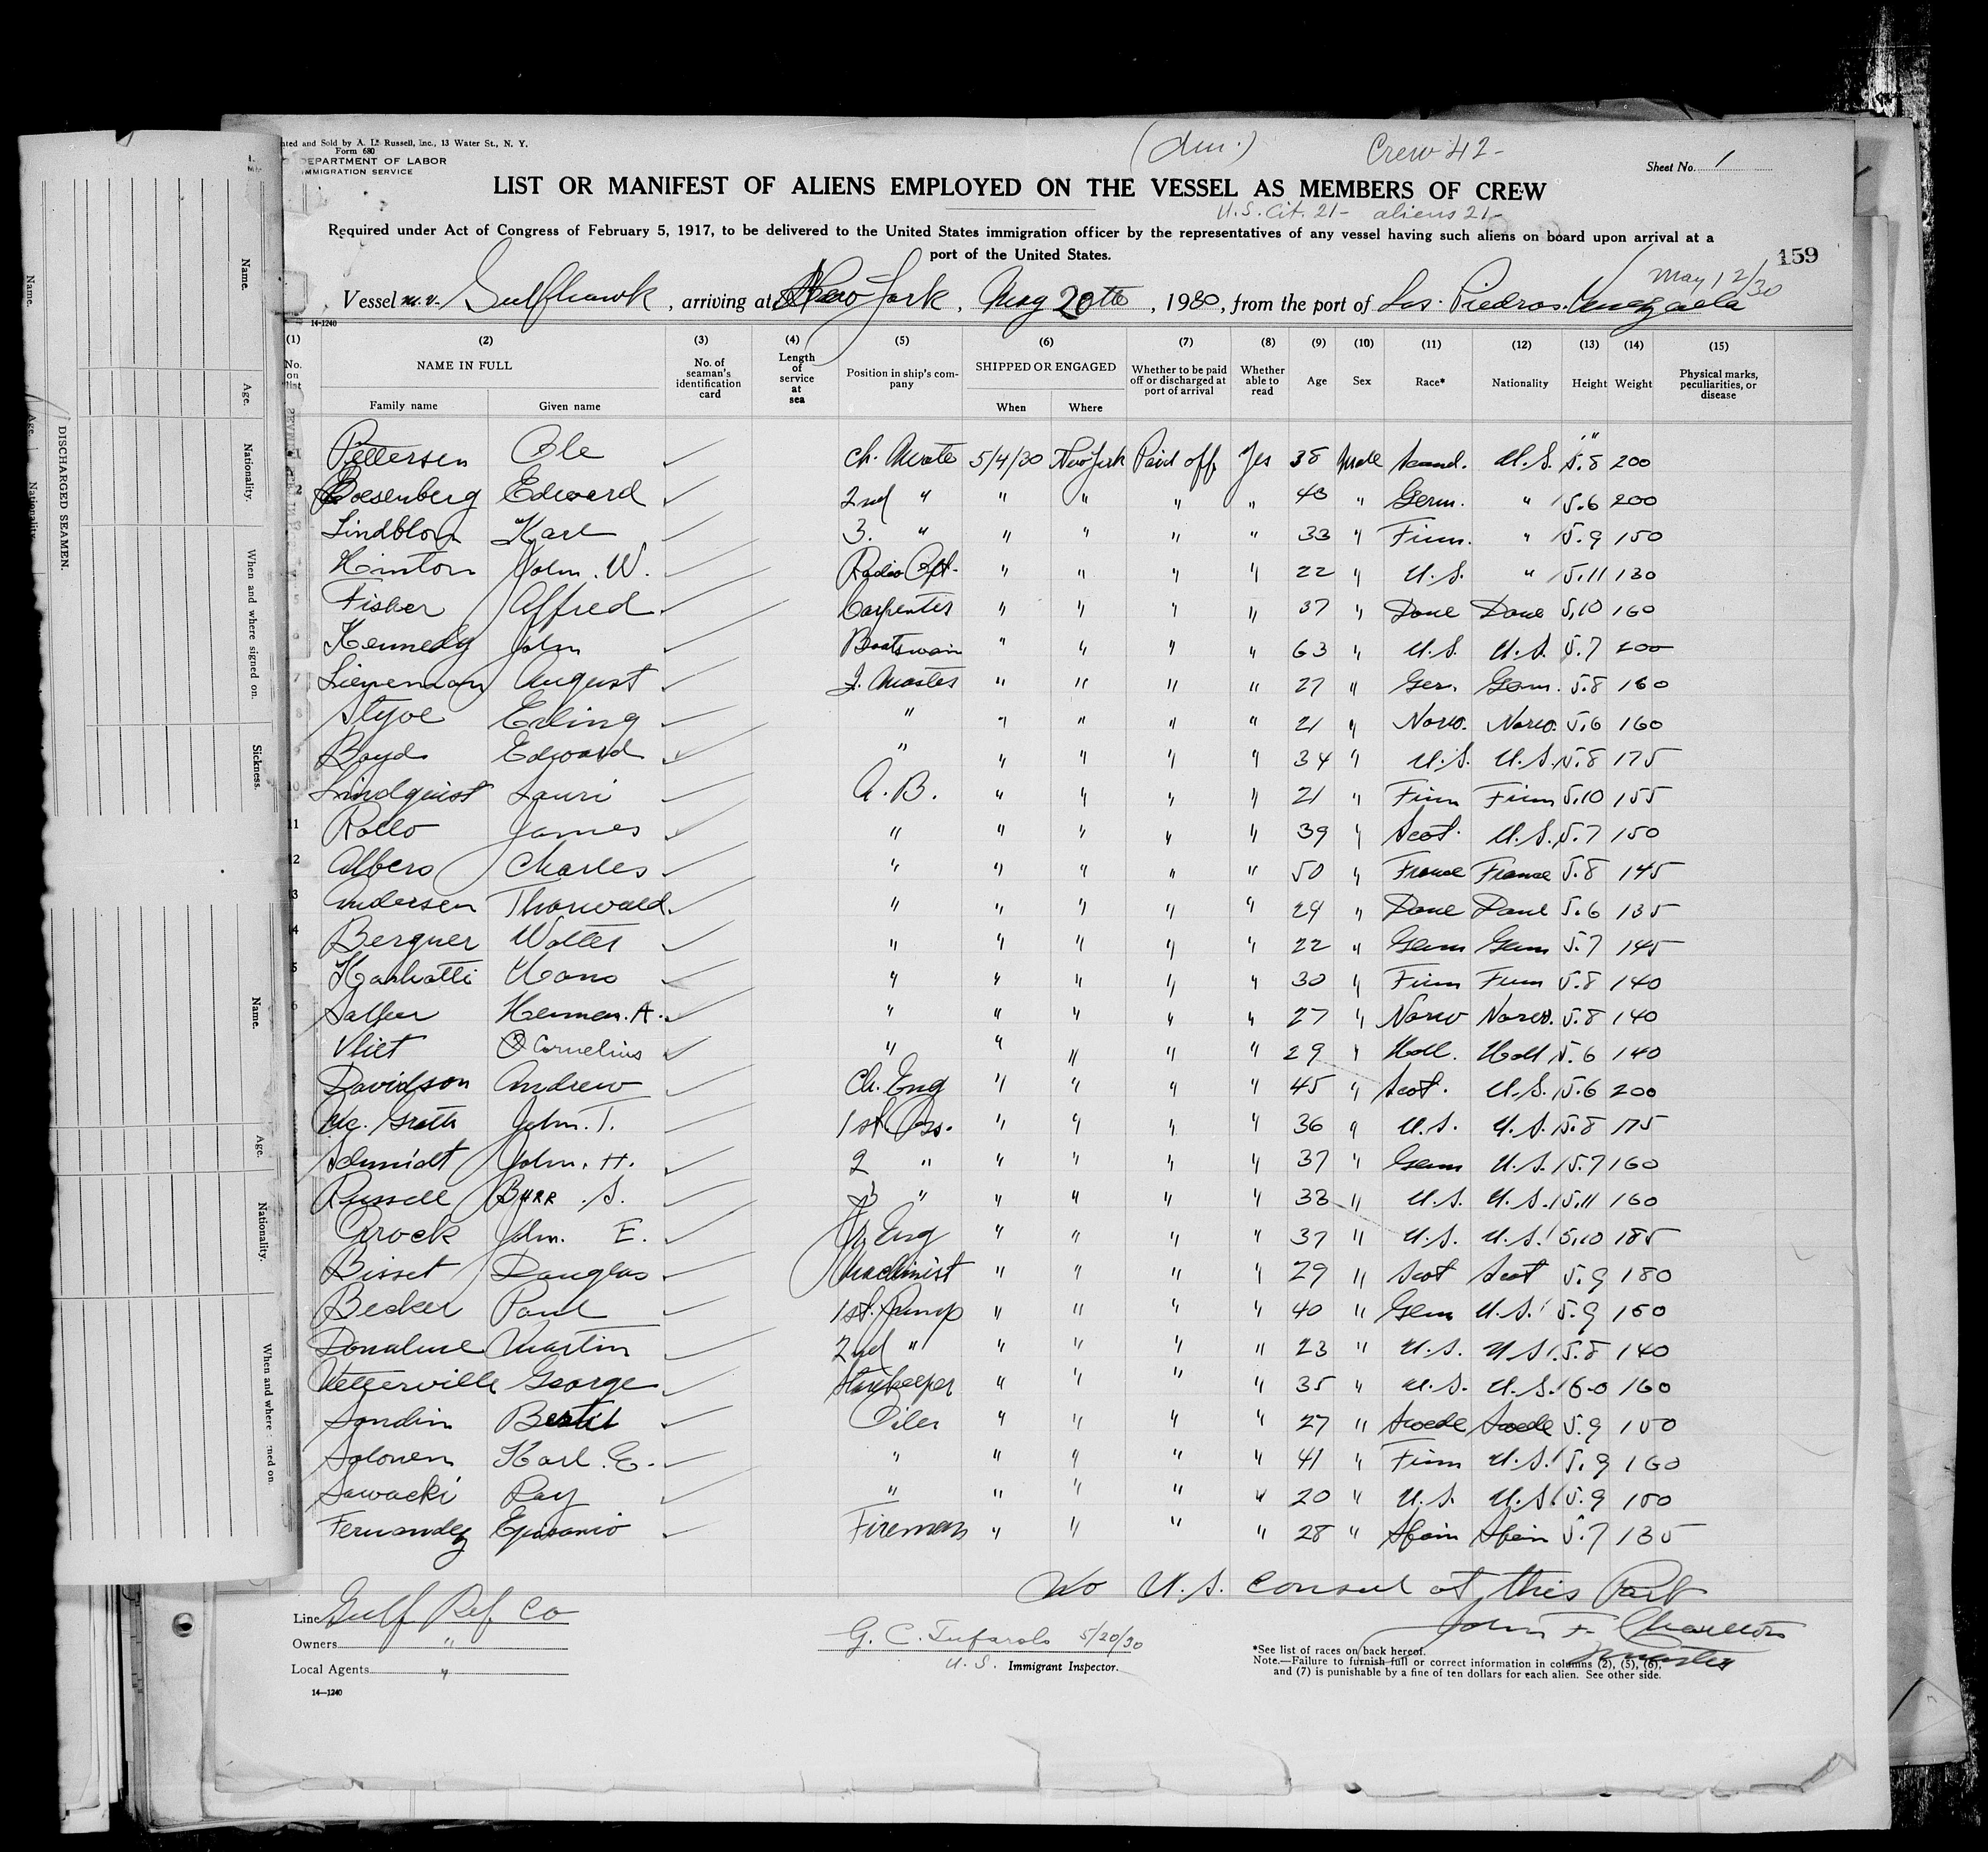 nted and Sold by A. L. Russell, Inc., 13 Water St., N. Y.
Form 680
DEPARTMENT OF LABOR
IMMIGRATION SERVICE
Crew 42-
Sheet No. 1
LIST OR MANIFEST OF ALIENS EMPLOYED ON THE VESSEL AS MEMBERS OF CREW
U.S. Cit. 21- aliens 21-
Required under Act of Congress of February 5, 1917, to be delivered to the United States immigration officer by the representatives of any vessel having such aliens on board upon arrival at a
port of the United States.
159
May 12/30
Vessel m.v. Gulfhawk, arriving at New York, May 20th, 1930, from the port of Las Piedras. Venezuela
14-1240
(1) (2) (3) (4) (5) (6) (7) (8) (9) (10) (11) (12) (13) (14) (15)
No. on list NAME IN FULL No. of seaman's identification card Length of service at sea Position in ship's company SHIPPED OR ENGAGED Whether to be paid off or discharged at port of arrival Whether able to read Age Sex Race* Nationality Height Weight Physical marks, peculiarities, or disease
Family name Given name When Where
1 Pettersen Ole ch. Mate 5/4/30 New York Paid off Yes 38 male Scand. U.S. 5.8 200
2 Boesenberg Edward 2nd " " " " " 43 " Germ. " 5.6 200
3 Lindblom Karl 3. " " " " " 33 " Finn. " 5.9 150
4 Hinton John. W. Radio Opt. " " " " 22 " U.S. " 5.11 130
5 Fisher Alfred Carpenter " " " " 37 " Dane Dane 5.10 160
6 Kennedy John Boatswain " " " " 63 " U.S. U.S. 5.7 200
7 Lieneman August Q. Master " " " " 27 " Ger. Germ. 5.8 160
8 Styve Erling " " " " " 21 " Norw. Norw. 5.6 160
9 Boyd Edward " " " " " 34 " U.S. U.S. 5.8 175
10 Lindquist Lauri A.B. " " " " 21 " Finn Finn 5.10 155
11 Rollo James " " " " " 39 " Scot. U.S. 5.7 150
12 Albers Charles " " " " " 50 " France France 5.8 145
13 Andersen Thorwald. " " " " " 29 " Dane Dane 5.6 135
14 Bergner Walter " " " " " 22 " Germ Germ 5.7 145
15 Karhatti Uano " " " " " 30 " Finn Finn 5.8 140
16 Herman. A. " " " " " 27 " Norw Norw. 5.8 140
Vliet Cornelius " " " " " 29 " Holl. Holl 5.6 140
Davidson Andrew Ch. Eng " " " " 45 " Scot. U.S. 5.6 200
Mc. Grath John. T. 1st Ass. " " " " 36 " U.S. U.S. 5.8 175
Schmidt John. H. 2 " " " " " 37 " Germ U.S. 5.7 160
Russell Burr .S. 3 " " " " " 33 " U.S. U.S. 5.11 160
Crock John. E. Jr. Eng " " " " 37 " U.S. U.S. 5.10 185
Bisset Douglas Machinist " " " " 29 " Scot Scot 5.9 180
Becker Paul 1st. Pump " " " " 40 " Germ U.S. 5.9 150
Donahue Martin 2nd " " " " " 23 " U.S. U.S. 5.8 140
Vetterville George Storekeeper " " " " 35 " U.S. U.S. 6-0 160
Sandin Bertil Oiler " " " " 27 " Swede Swede 5.9 150
Salonen Karl. E. " " " " " 41 " Finn U.S. 5.9 160
Sawacki Ray " " " " " 20 " U.S. U.S. 5.9 150
Fernandez Epifanio Fireman " " " " 28 " Spain Spain 5.7 135
No U.S. Consul at this Port
John F. Charlton
Master
Line Gulf Ref. Co
Owners "
Local Agents "
14—1240
G. C. Tufarolo 5/20/30
U.S. Immigrant Inspector.
*See list of races on back hereof.
Note.—Failure to furnish full or correct information in columns (2), (5), (6),
and (7) is punishable by a fine of ten dollars for each alien. See other side.
Name.
Age.
Nationality.
When and where signed on.
Sickness.
Name.
Age.
Nationality.
When and where signed on.
DISCHARGED SEAMEN.
Name.
Age.
Nationality.